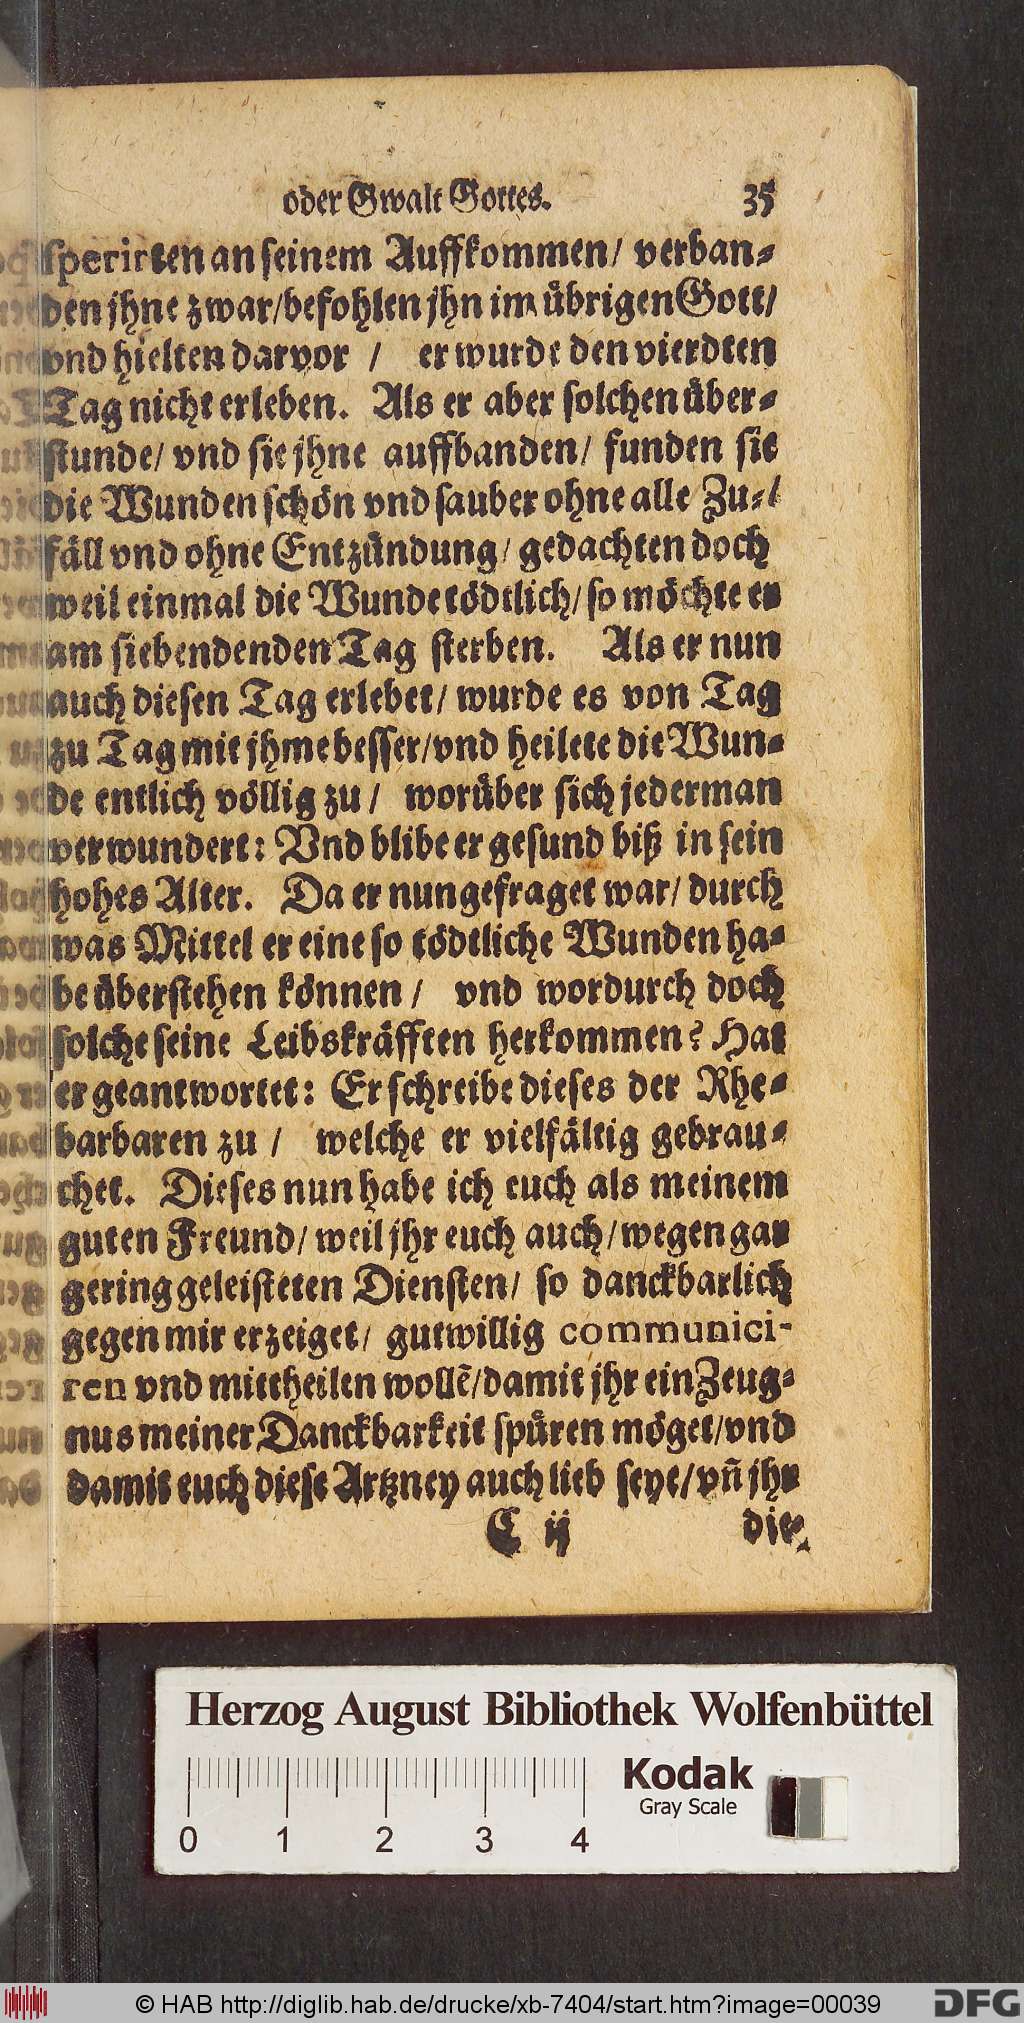 oder Gwalt Gottes. 35
sperirten an seinem Auffkommen/ verban-
den jhne zwar/befohlen jhn im übrigen Gott/
vnd hielten darvor / er wurde den vierdten
Tag nicht erleben. Als er aber solchen über-
stunde/ vnd sie jhne auffbanden/ funden sie
die Wunden schön vnd sauber ohne alle Zu-
fäll vnd ohne Entzündung/ gedachten doch
weil einmal die Wunde tödtlich/ so möchte er
am siebendenden Tag sterben. Als er nun
auch diesen Tag erlebet/ wurde es von Tag
zu Tag mit jhme besser/vnd heilete die Wun-
de entlich völlig zu / worüber sich jederman
verwundert: Vnd blibe er gesund biß in sein
hohes Alter. Da er nun gefraget war/ durch
was Mittel er eine so tödtliche Wunden ha-
be überstehen können / vnd wordurch doch
solche seine Leibskräfften herkommen? Hat
er geantwortet: Er schreibe dieses der Rhe-
barbaren zu / welche er vielfältig gebrau-
chet. Dieses nun habe ich euch als meinem
guten Freund/ weil jhr euch auch/ wegen gar
gering geleisteten Diensten/ so danckbarlich
gegen mir erzeiget/ gutwillig communici-
ren vnd mittheilen wollẽ/damit jhr ein Zeug-
nus meiner Danckbarkeit spüren möget/vnd
damit euch diese Artzney auch lieb seye/vñ jhr
C ij die-
Herzog August Bibliothek Wolfenbüttel
Kodak
Gray Scale
0 1 2 3 4
© HAB http://diglib.hab.de/drucke/xb-7404/start.htm?image=00039 DFG